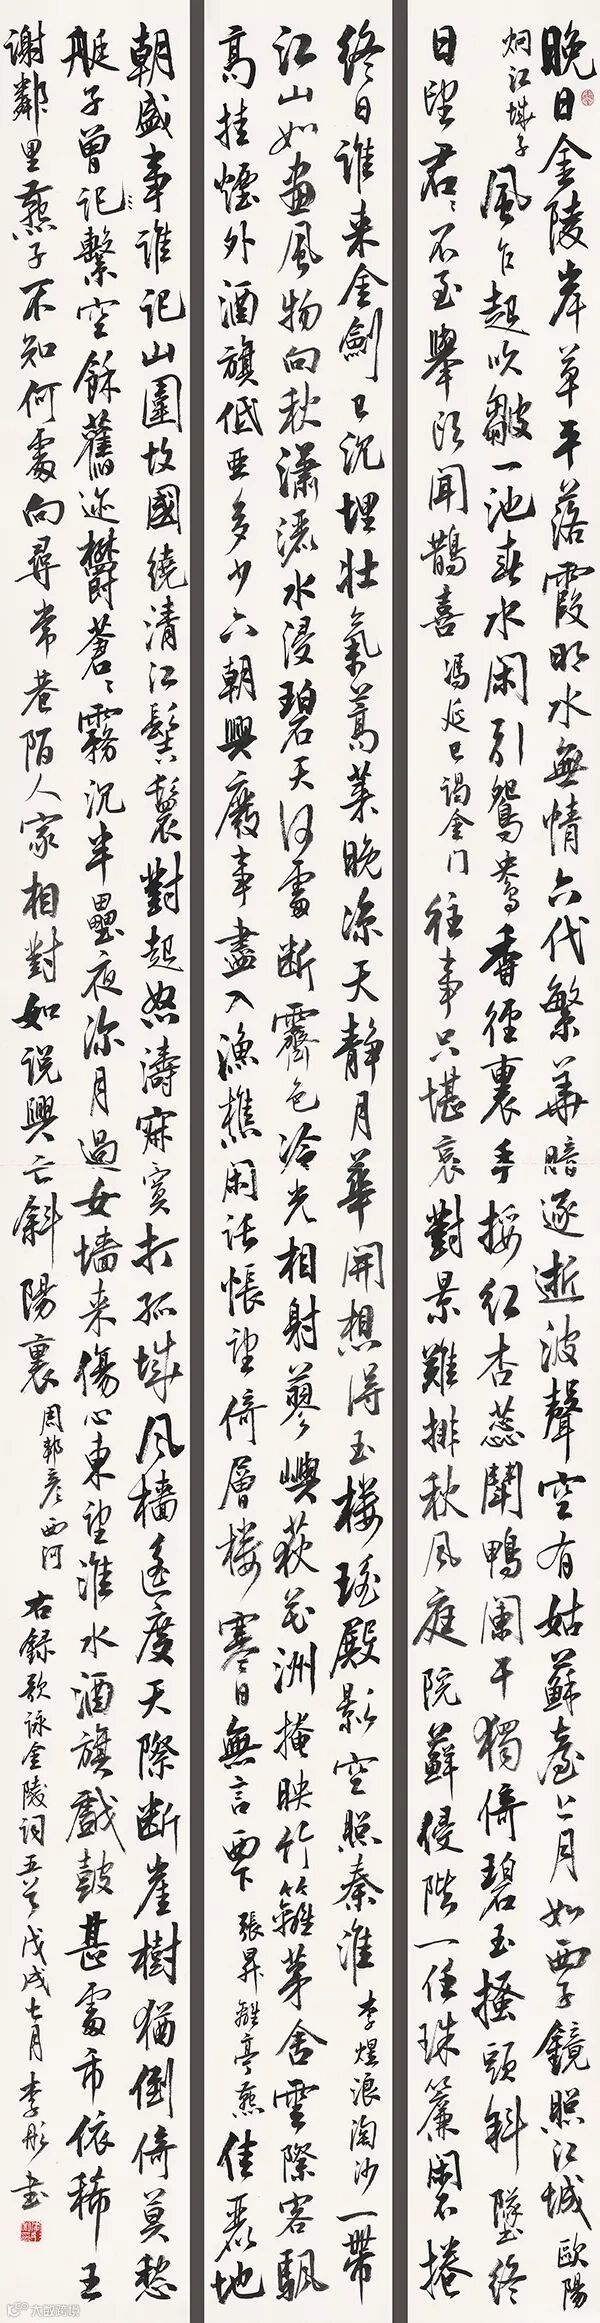 晚日金陵岸草平落霞明水無情六代繁華暗逐逝波聲空有姑蘇臺上月如西子鏡照江城歐陽
炯江城子風乍起吹皺一池春水閑引鴛鴦香徑裏手挼紅杏蕊鬪鴨闌干獨倚碧玉搔頭斜墜終
日望君〻不至舉頭聞鵲喜馮延巳謁金门往事只堪哀對景難排秋風庭院蘚侵階一任珠簾閑不捲
終日誰来金劍已沉埋壯氣蒿萊晚涼天靜月華開想得玉樓瑤殿影空照秦淮李煜浪淘沙一帶
江山如畫風物向秋瀟灑水浸碧天何處斷霽色冷光相射蓼嶼荻花洲掩映竹籬茅舍雲際客颿
高挂煙外酒旗低亞多少六朝興廢事盡入漁樵閑話悵望倚層樓寒日無言西下張昇離亭燕佳麗地
朝盛事誰記山圍故國繞清江髻鬟對起怒濤寂寞打孤城風檣遙度天際斷崖樹猶倒倚莫愁
艇子曾記繫空餘舊迹鬱蒼〻霧沉半壘夜深月過女墻来傷心東望淮水酒旗戲鼓甚處市依稀王
謝鄰里燕子不知何處向尋常巷陌人家相對如説興亡斜陽裏周邦彥西河右録歌詠金陵詞五首戊戌七月李彤書